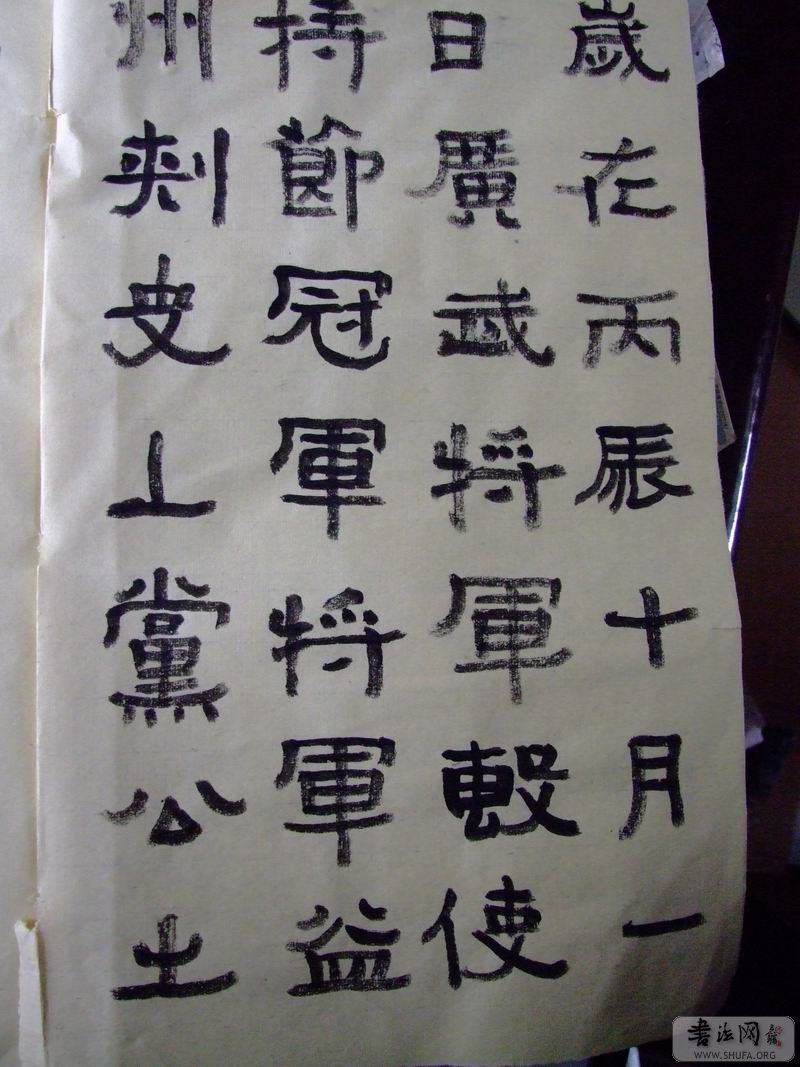 歲在丙辰十月一
日廣武將軍使
持節冠軍將軍益
州刺史上黨公土
書法网
WWW.SHUFA.ORG